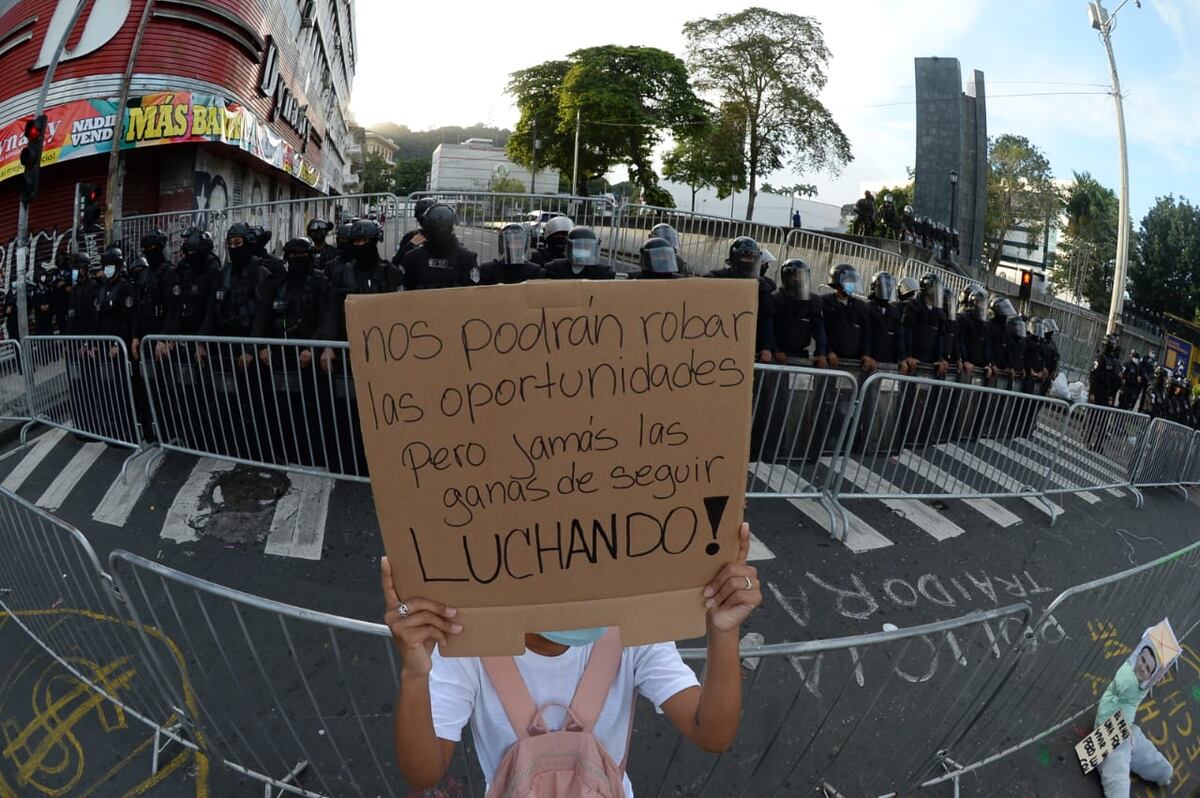 NADIE
VEND
MÁS BA
nos podrán robar
las oportunidades
Pero jamás las
ganas de seguir
LUCHANDO!
TRAIDORA
POLICIA